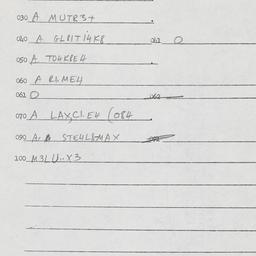 030 A MUTR3+
040 A GLBIT14K8 041 O
050 A TO4KBE4
060 A RLME4
061 O 062
070 A LAX,CLE4 (084
090 A. STE4L8MAX
100 M3LU..X3